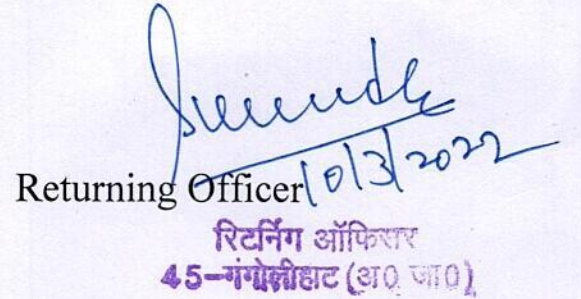 10/3/2022
Returning Officer
रिटर्निंग ऑफिसर
45-गंगोलीहाट (अ0 जा0)